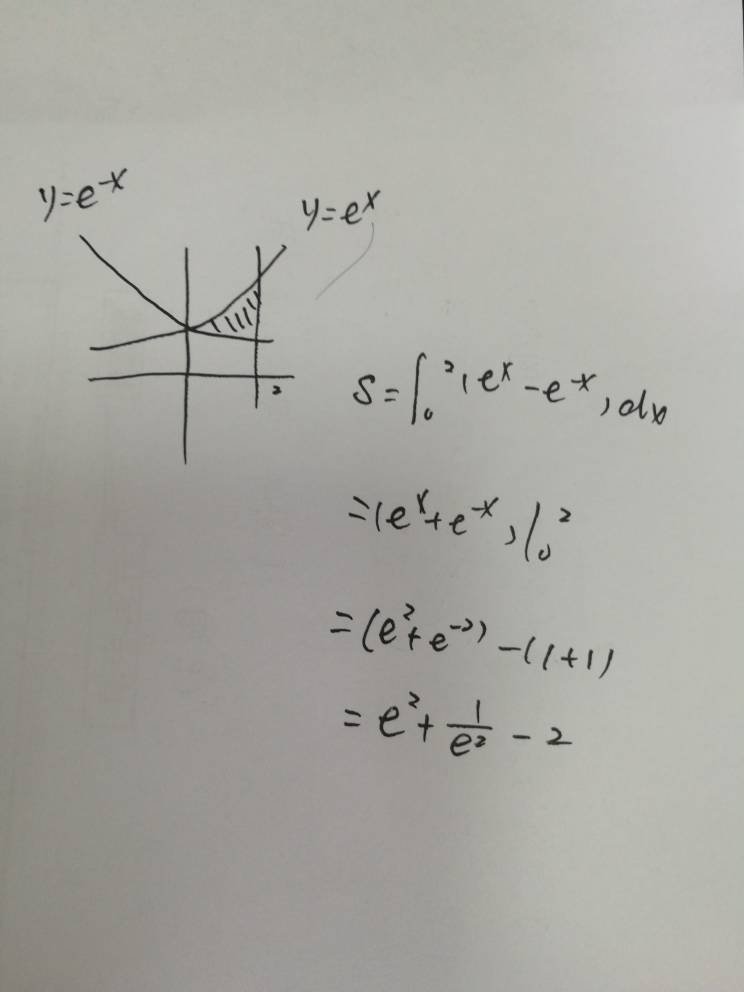 y=e^{-x}
y=e^x
2
S=∫_0^2(e^x-e^{-x})dx
=(e^x+e^{-x})|_0^2
=(e^2+e^{-2})-(1+1)
=e^2+\frac{1}{e^2}-2